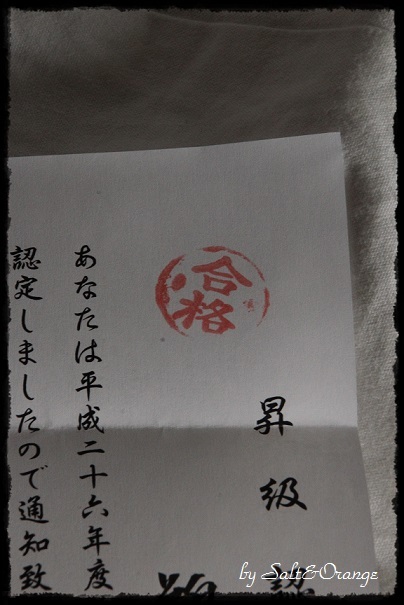 昇級認
合格
あなたは平成二十六年度
認定しましたので通知致
by Salt&Orange